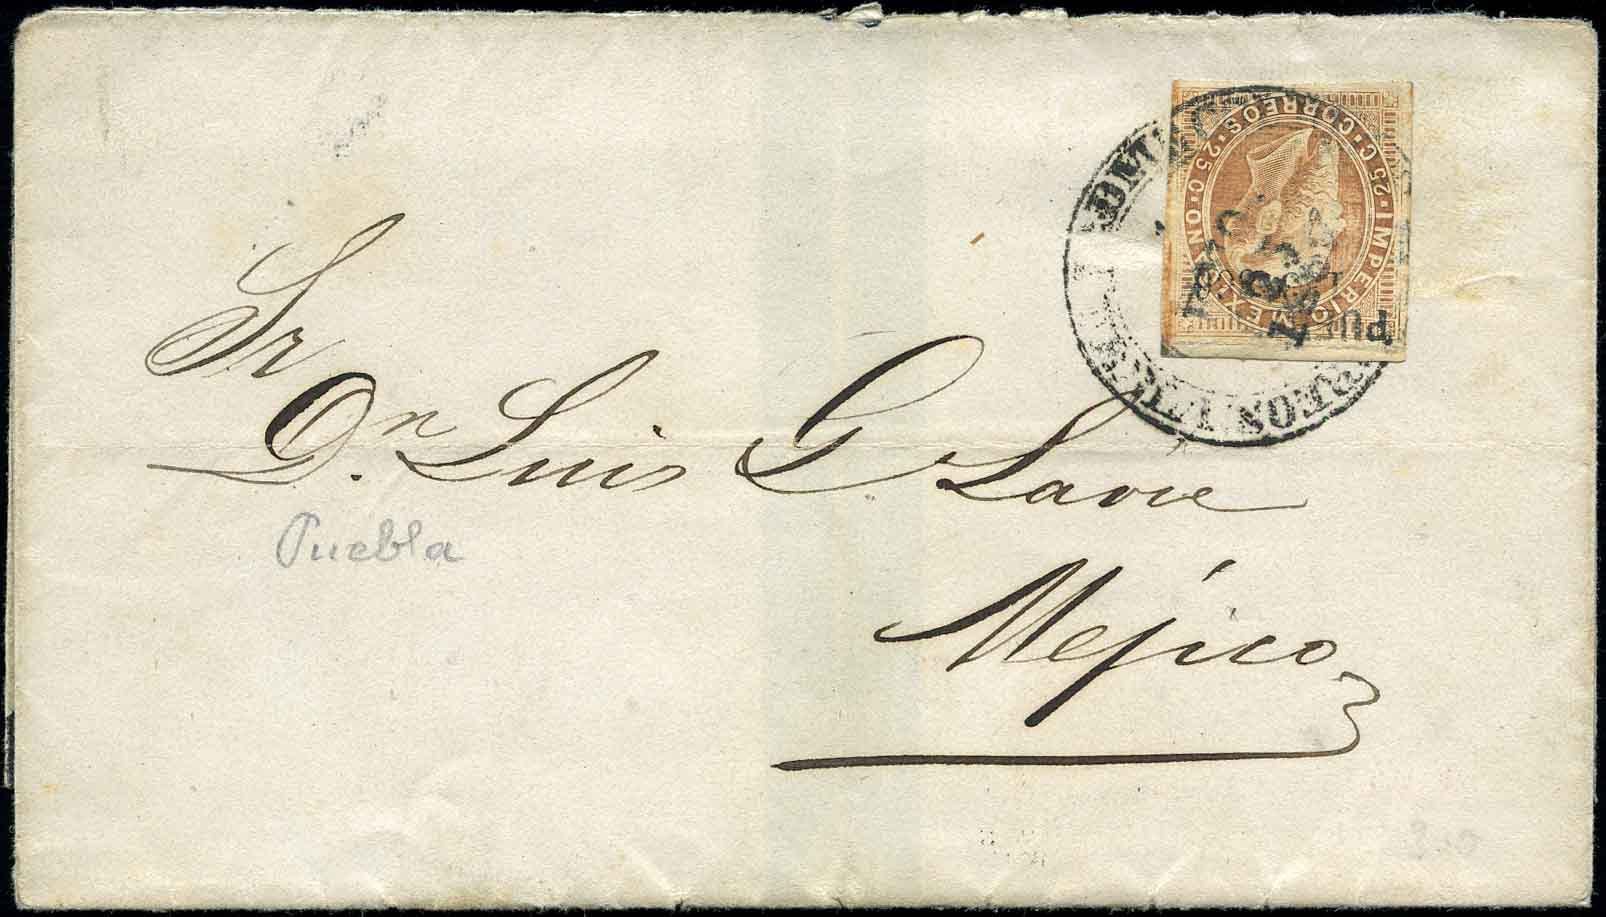 Sr
Dn. Luis G Lavie
Puebla
Mejico
IMPERIO MEXICANO · 25 C · CORREOS · 25 C